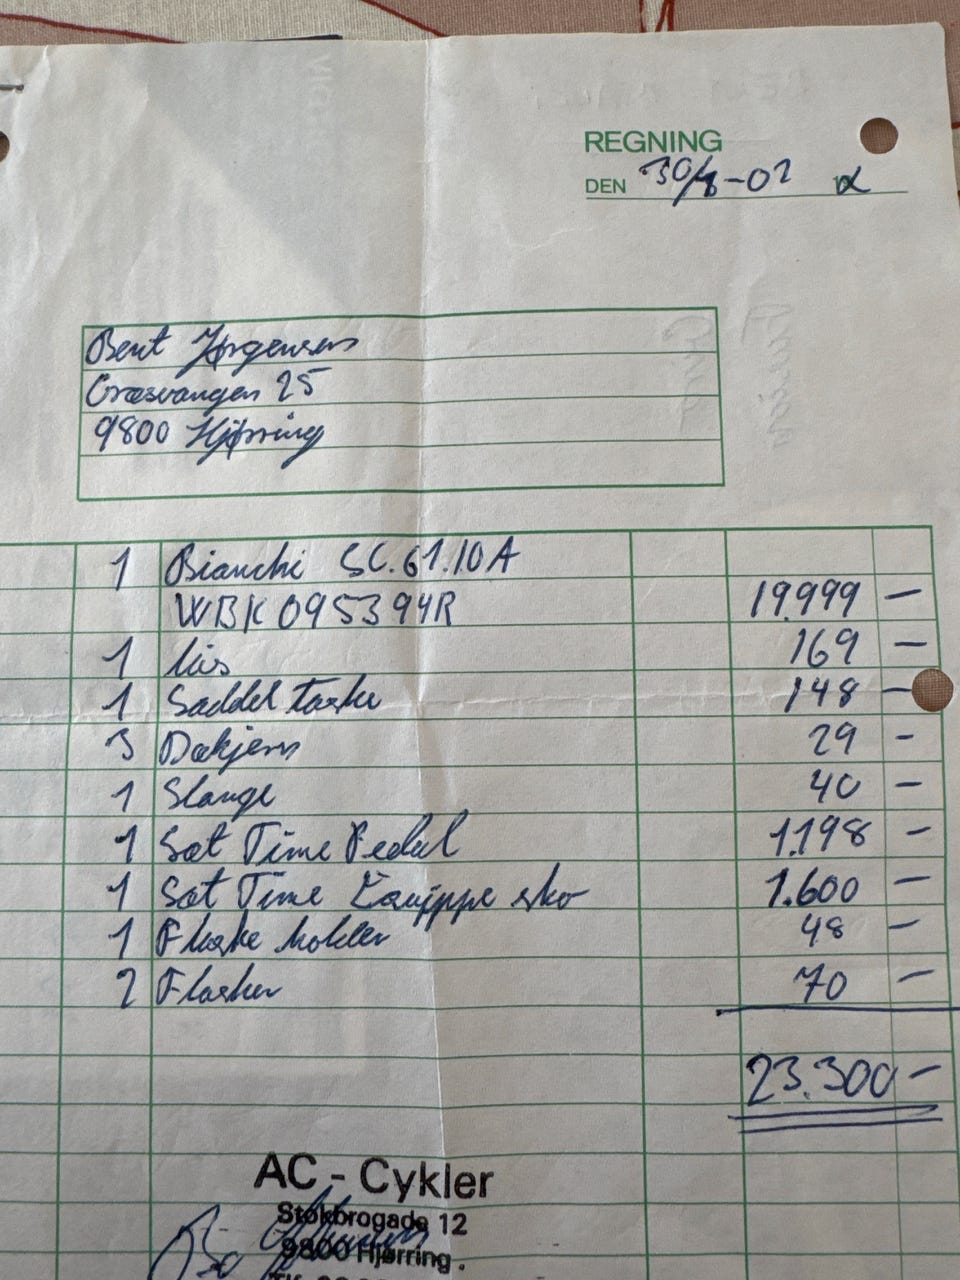 REGNING
DEN 30/4-02
Bent Jørgensen
Græsvangen 25
9800 Hjørring
1 Bianchi SC.61.10A
WBK095394R 19.999 -
1 lås 169 -
1 Saddel taske 148 -
3 Dækjern 29 -
1 Slange 40 -
1 Sæt Time Pedal 1.198 -
1 Sæt Time Equippe sko 1.600 -
1 Flaske holder 48 -
2 Flasker 70 -
23.300 -
AC - Cykler
Stokbrogade 12
9800 Hjørring.